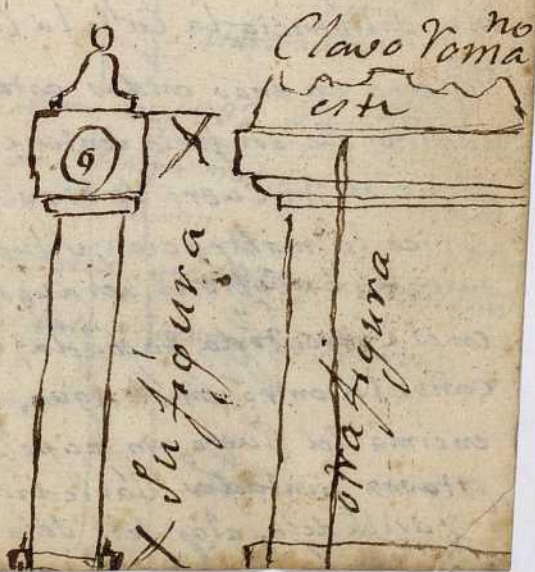 Clavo Romano
este
Su figura
otra figura